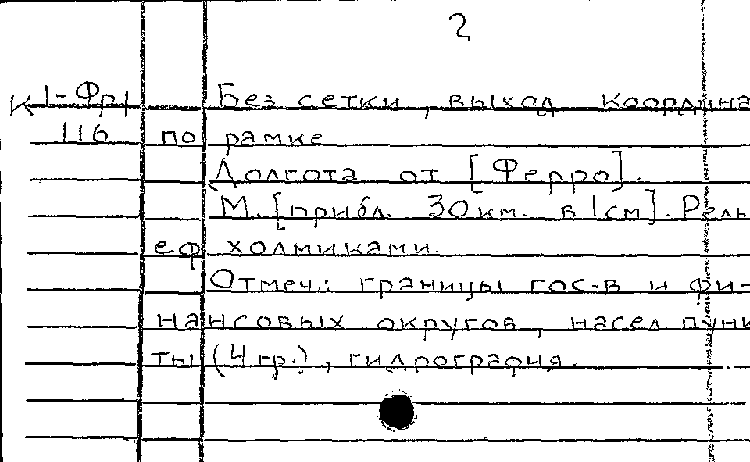 2
К 1-Фр1 Без сетки, выход координа
116 по рамке
Долгота от [Ферро].
М. [прибл. 30 км. в 1 см]. Рель
еф холмиками.
Отмеч.: границы гос-в и фи-
нансовых округов, насел пунк
ты (4 гр.), гидрография.